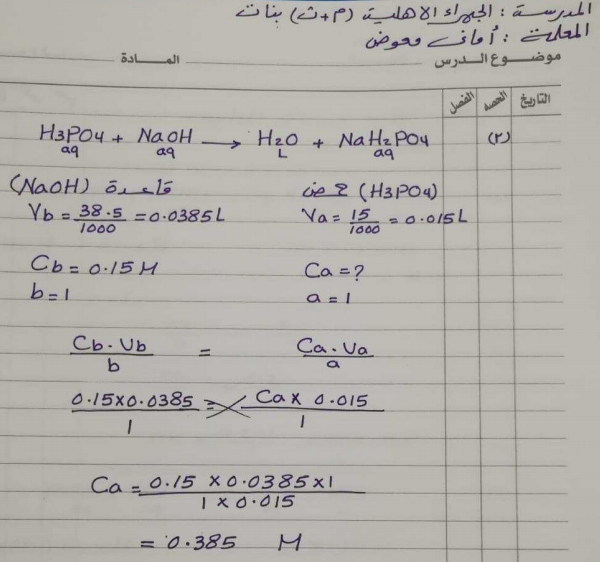 المدرسة : الجهراء الاهلية (م+ث) بنات
المعلمة : أماني معوض
موضوع الدرس المادة
التاريخ الحصة الفصل
(٢) H3PO4 + NaOH → H2O + NaH2PO4
aq aq L aq
(NaOH) قاعدة حمض (H3PO4)
Vb = 38.5/1000 = 0.0385L Va = 15/1000 = 0.015L
Cb = 0.15 M Ca = ?
b = 1 a = 1
Cb . Vb / b = Ca . Va / a
0.15 x 0.0385 / 1 = Ca x 0.015 / 1
Ca = 0.15 x 0.0385 x 1 / 1 x 0.015
= 0.385 M